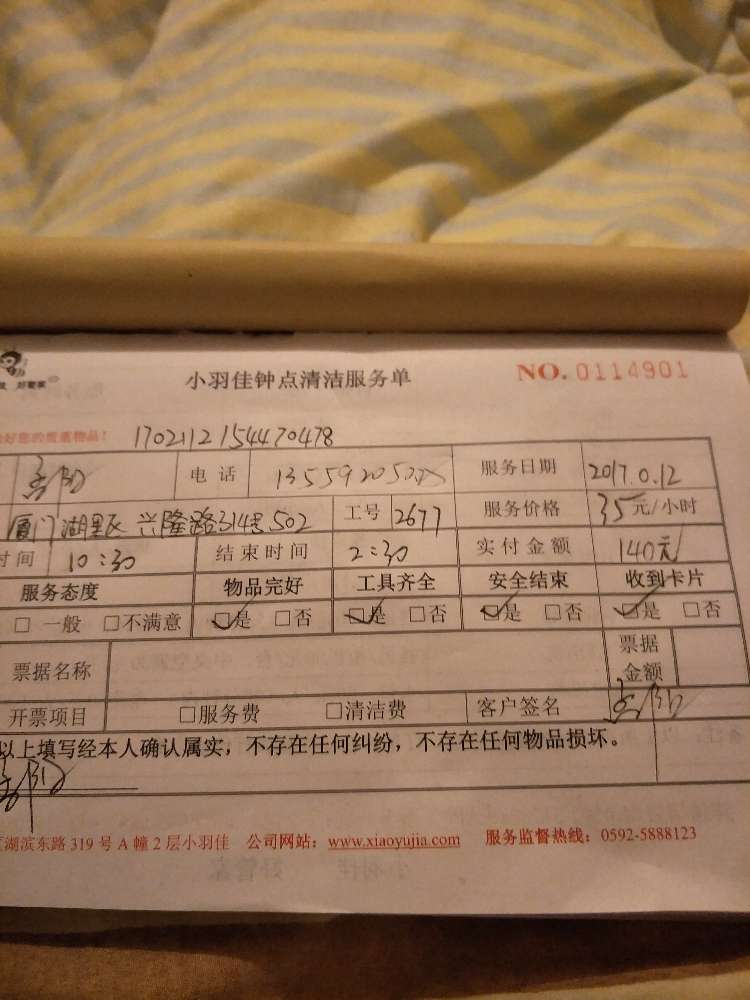 好管家
小羽佳钟点清洁服务单 NO.0114901
好您的贵重物品！ 170211215447 0478
电话 服务日期 2017.0.12
厦门湖里区兴隆路314号502 工号 2677 服务价格 35元/小时
时间 10:30 结束时间 2:30 实付金额 140元
服务态度 物品完好 工具齐全 安全结束 收到卡片
□一般 □不满意 ☑是 □否 ☑是 □否 ☑是 □否 ☑是 □否
票据名称 票据金额
开票项目 □服务费 □清洁费 客户签名
以上填写经本人确认属实，不存在任何纠纷，不存在任何物品损坏。
湖滨东路319号A幢2层小羽佳 公司网站：www.xiaoyujia.com 服务监督热线：0592-5888123